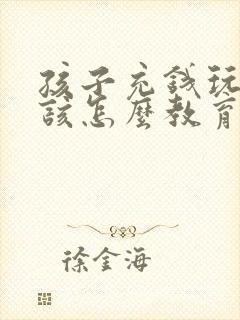 孩子充錢玩
該怎麼教育
徐金海